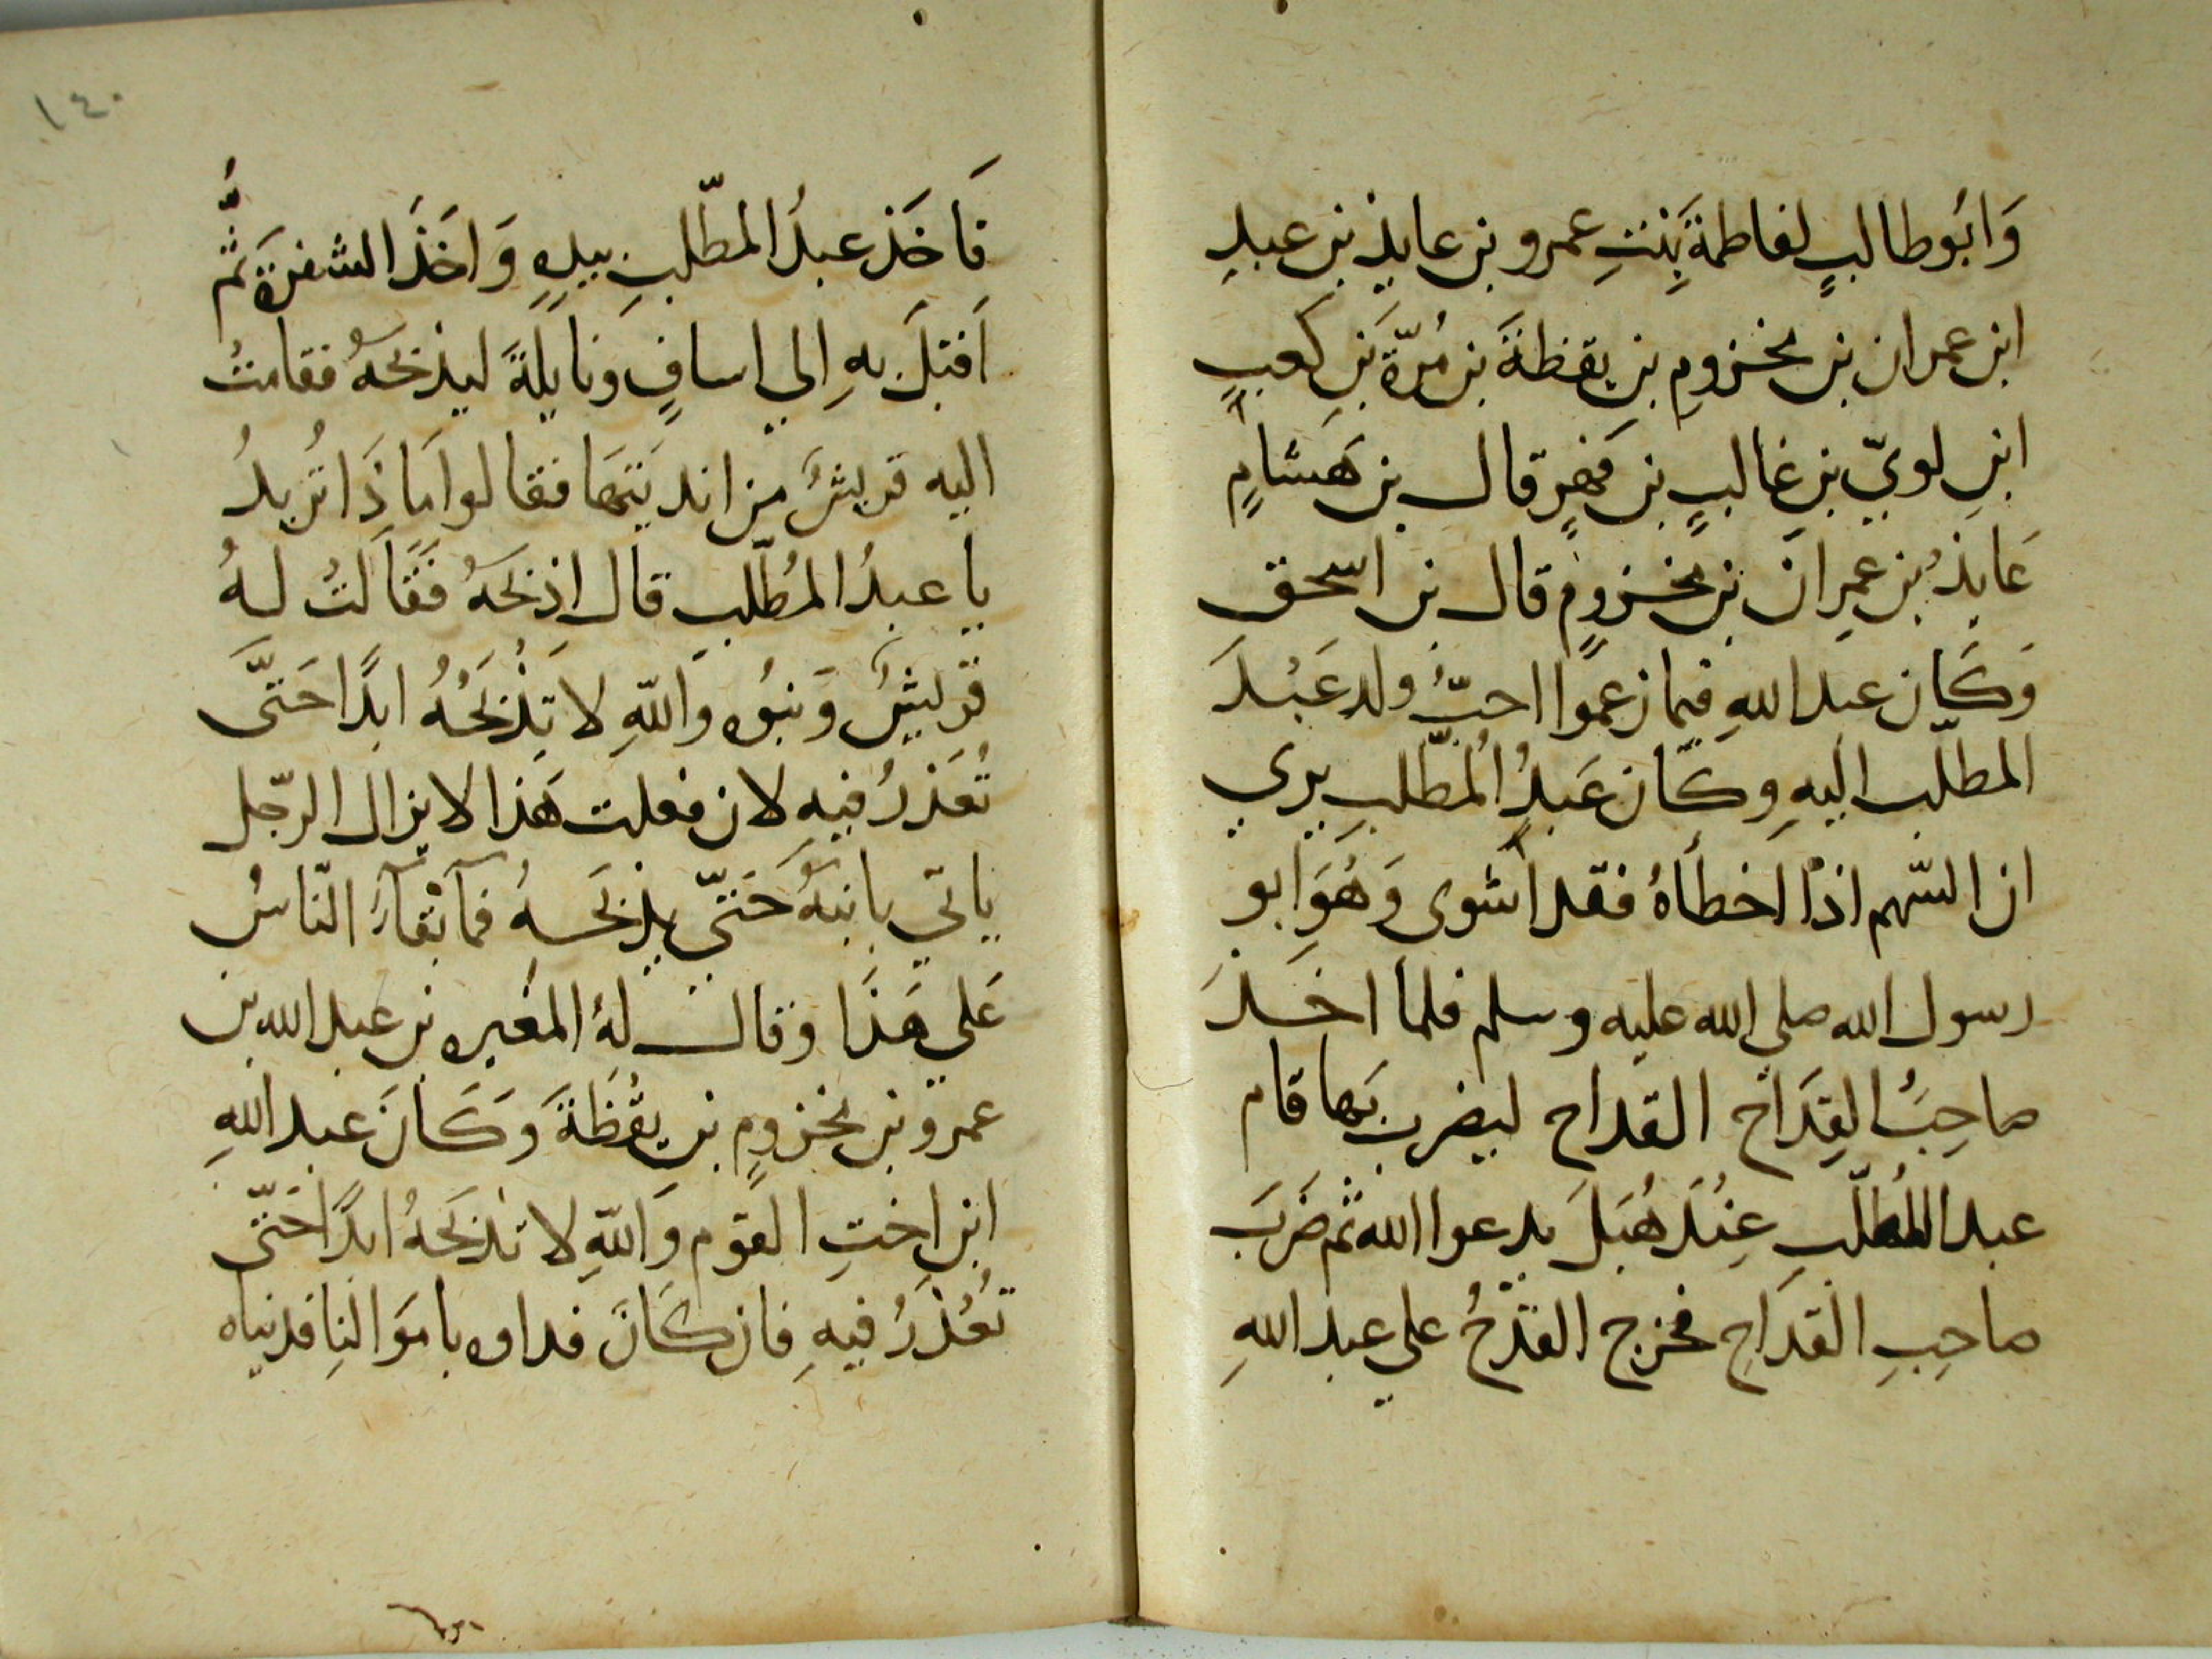 وَابُو طالبٍ لفاطمةَ بِنتِ عمرو بن عايذِ بن عبدِ
ابن عمران بن مخزومِ بن يقظةَ بن مُرّةَ بَنِ كعبٍ
ابنِ لويّ بن غالبٍ بن فهرٍ قال بن هَشامٍ
عَايذُ بن عمرانَ بن مخزومٍ قال بن اسحق
وَكَان عبد اللهِ فيما زعموا احبُّ ولد عَبْدَ
المطلّب اليهِ وكَان عَبدُ المُطّلبِ يري
ان السّهم اذا اخطأهُ فقد اشوى وَهُوَ ابو
رسول الله صلي الله عليه وسلم فلما اخذَ
صاحِبُ القِدَاح القداح ليضرب بَها قام
عبد المُطلّبِ عِنْدَ هُبَلَ يدعوا الله ثم ضَرَبَ
صاحِبِ القدَاحِ فخرج القدْحُ علي عبد اللهِ
١٤٠
فَاخَذ عبدُ المطّلبِ بيدِهِ وَاخَذَ الشفرة ثمَّ
اَقبَلَ بهِ الي اسافٍ ونايلةَ ليذبحَهُ فقامتْ
اليه قريشٌ من اندَيتهَا فقالوا مَاذَا تُريدُ
يا عبدُ المُطّلبِ قال اذبحَهُ فَقَالتُ لهُ
قريشٌ وَبَنوُه وَاللّهِ لا تذْبَحُهُ ابدًا حَتَّى
تُعَذرُ فيهِ لان فعلت هَذا لا يزال الرّجل
ياتي بابنهُ حَتّي يذبَحهُ فمآ بقآءَ النّاسُ
عَلي هَذَا وقال لهُ المُغيره بن عبد الله بن
عمرو بن مخزومٍ بن يقْظَةَ وَكَانَ عبد اللهِ
ابن اختِ القوم وَاللّهِ لا تذبَحهُ ابدًا حَتّى
تَعْذرُ فيهِ فان كَانَ فداوه بامَوَالِنا فديناه